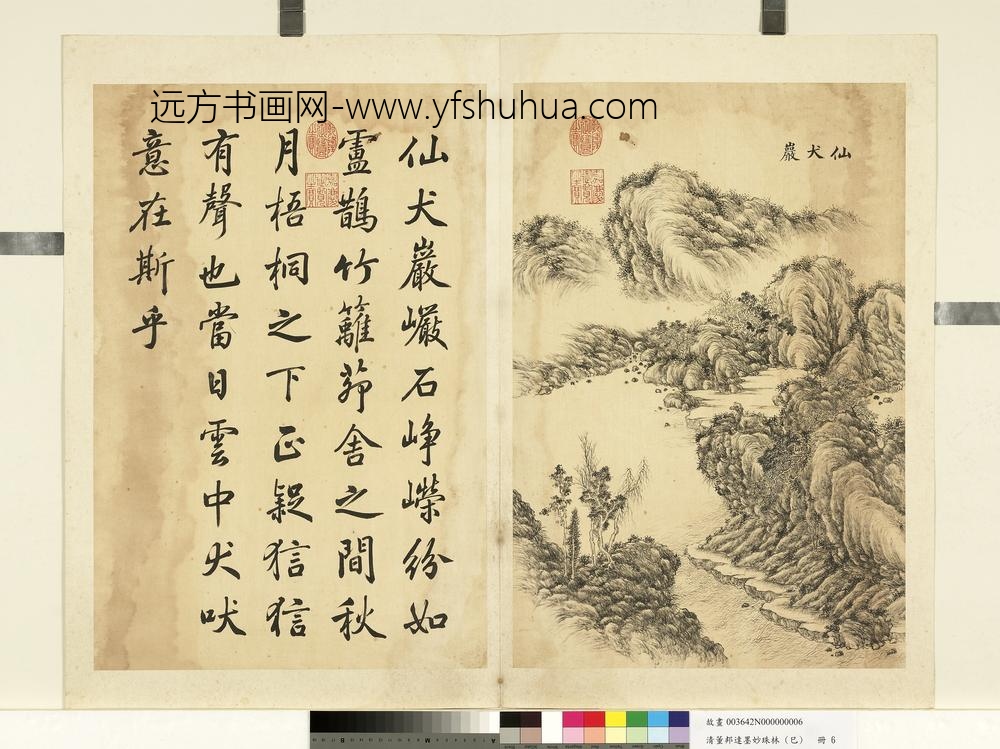 远方书画网-www.yfshuhua.com
仙犬巖
仙犬巖巗石崢嶸紛如
盧鵲竹籬茆舍之間秋
月梧桐之下正疑狺狺
有聲也當日雲中犬吠
意在斯乎
故畫 003642N000000006
清董邦達墨妙珠林（巳） 冊 6